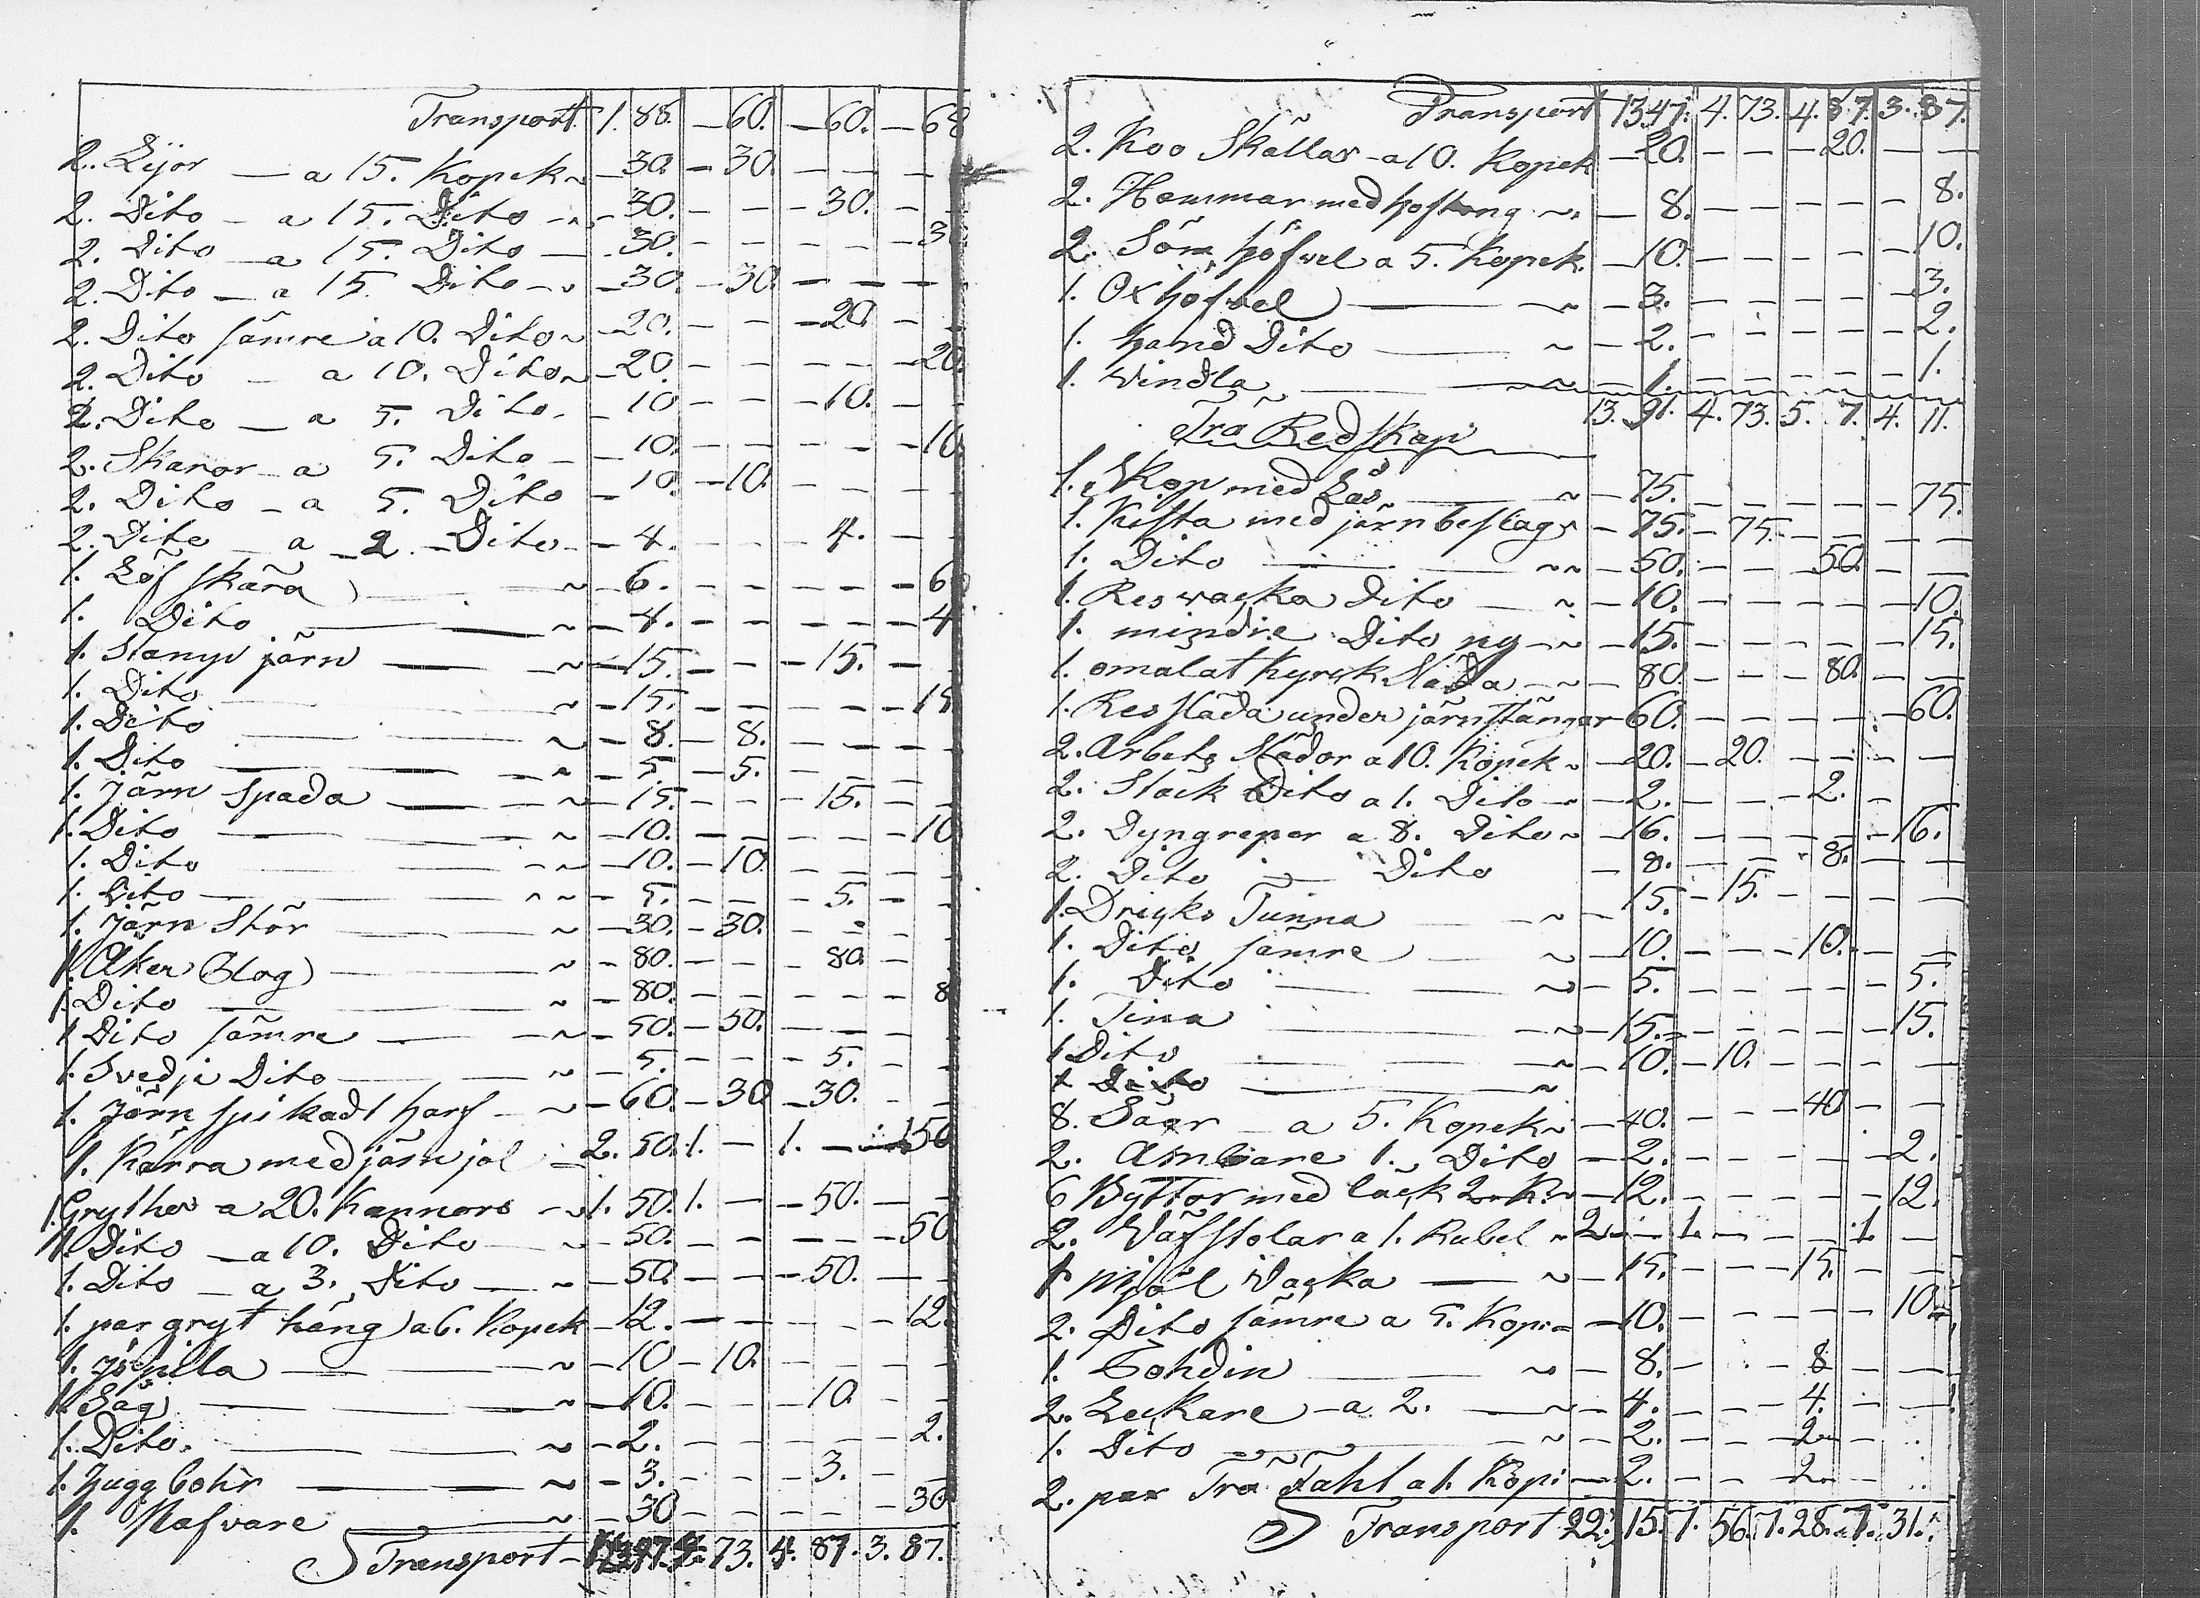 Transport 1. 88. — 60. — 60. — 68
2. Lijor — a 15. Kopek ~ — 30. — 30. — — — —
2. Dito — a 15. Dito — 30. — — — 30. — —
2. Dito — a 15. Dito — 30. — — — — — 30
2. Dito — a 15. Dito — 30. — 30. — — — —
2. Dito sämre a 10. Dito ~ — 20. — — — 20. — —
2. Dito — a 10. Dito ~ — 20. — — — — — 20.
2. Dito — a 5. Dito — 10 — — — 10. — —
2. Skäror — a 5. Dito — 10. — — — — — 10
2. Dito — a 5. Dito — 10. — 10. — — — —
2. Dito — a 2. Dito — 4. — — — 4. — —
1. Löf skära — ~ — 6. — — — — — 6
1. Dito — ~ — 4. — — — — — 4
1. Stamp järn — ~ — 15. — — — 15. — —
1. Dito — ~ — 15. — — — — — 15
1. Dito — ~ — 8. — 8. — — — —
1. Dito — ~ — 5. — 5. — — — —
1. Järn Spada — ~ — 15. — — — 15. — —
1. Dito — ~ — 10. — — — — — 10
1. Dito — ~ — 10. — 10. — — — —
1. Dito — ~ — 5. — — — 5. — —
1. Järn Stör — ~ — 30. — 30. — — — —
1. Åker Plog — ~ — 80. — — — 80. — —
1. Dito — ~ — 80. — — — — — 8
1. Dito sämre — ~ — 50. — 50. — — — —
1. Svedje Dito — ~ — 5. — — — 5. — —
1. Järn spikadt harf — ~ — 60. — 30 — 30. — —
1. Kärra med järn jol — 2. 50. 1. — 1. — — 50
1. Grythor a 20. Kannors ~ 1. 50. 1. — — 50. — —
1. Dito — a 10. Dito — ~ — 50. — — — — — 50
1. Dito — a 3. Dito — ~ — 50. — — — 50. — —
1. par gryt häng a 6. Kopek — 12. — — — — — 12.
1. Jspilla — ~ — 10 — 10. — — — —
1. Såg — ~ — 10. — — — 10. — —
1. Dito. — ~ — 2. — — — — — 2.
1. Hugg bohr — ~ — 3. — — — 3. — —
1. Nafvare — ~ — 30 — — — — — 30
Transport — 13 47. 4. 73. 4. 87. 3. 87.
Transport 13 47. 4. 73. 4. 87. 3. 87.
2. Koo Skällor — a 10. Kopek — 20. — — — 20. — —
2. Hammar med hoftong ~ — 8. — — — — — 8.
2. Söm höfvel a 5. Kopek. — 10. — — — — — 10.
1. Ox höfvel — ~ — 3. — — — — — 3.
1. hand Dito — ~ — 2. — — — — — 2.
1. Vindla — ~ — 1. — — — — — 1.
13. 91. 4. 73. 5. 7. 4. 11.
Trä Redskap
1. Skop med Lås. — ~ — 75. — — — — — 75.
1. Kista med järn beslag ~ — 75. — 75. — — — —
1. Dito — ~~ — 50. — — — 50. — —
1. Resvacka Dito — ~ — 10. — — — — — 10.
1. mindre Dito ny — ~ — 15. — — — — — 15.
1. omalat Kyrck Släda — ~ — 80. — — — 80. — —
1. Res släda under järnstänger — 60. — — — — — 60.
2. Arbets Slädor a 10. Kopek ~ — 20. — 20. — — — —
2. Stäck Dito a 1. Dito — 2. — — — 2. — —
2. Dyngreper a 8. Dito ~ — 16. — — — — — 16.
2. Dito — Dito — 8. — — — 8. — —
1. Dricks Tunna — ~ — 15. — 15. — — — —
1. Dito sämre — ~ — 10. — — — 10. — —
1. Dito — ~ — 5. — — — — — 5.
1. Tina — ~ — 15. — — — — — 15.
1 Dito — ~ — 10. — 10. — — — —
1 Dito — ~
8. Sågr — a 5. Kopek ~ — 40. — — — 40 — —
2. Ämbare 1. Dito — 2. — — — — — 2.
6 Byttor med låck 2. K. ~ — 12. — — — — — 12.
2. Väfstolar a 1. Rubel ~ 2. — 1. — — — 1. —
1 Mjöl Vacka — ~ — 15. — — — 15. — —
2. Dito sämre a 5. Kop: — 10. — — — — — 10.
1. Bohdin — ~ — 8. — — — 8 — —
2. Leckare — a 2. — ~ — 4. — — — 4. — —
1. Dito — ~ — 2. — — — 2. — —
2. par Trä Fahl a 1. Kop: — 2. — — — 2. — —
Transport 22. 15. 7. 56. 7. 28. 7. 31.